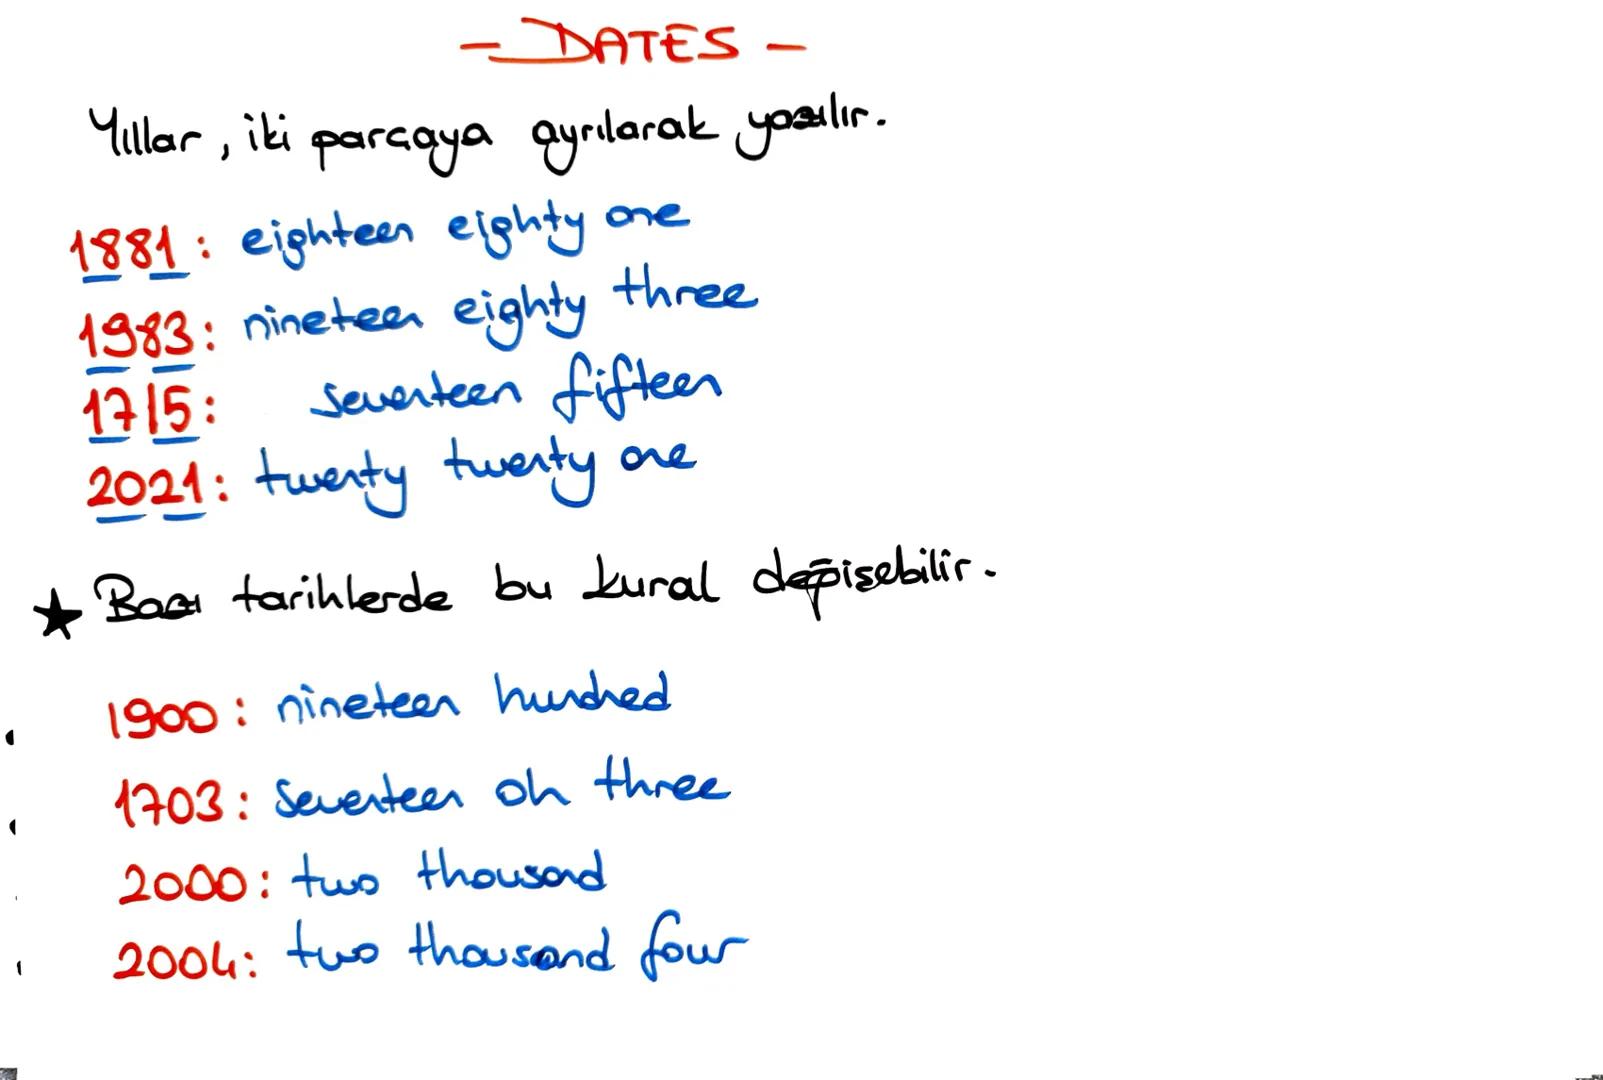 - DATES -
Yıllar, iki parçaya ayrılarak yazılır.
1881: eighteen eighty one
1983: nineteen eighty three
1715: seventeen fifteen
2021: twenty twenty one
★ Bazı tarihlerde bu kural değişebilir.
1900: nineteen hundred
1703: seventeen oh three
2000: two thousand
2004: two thousand four